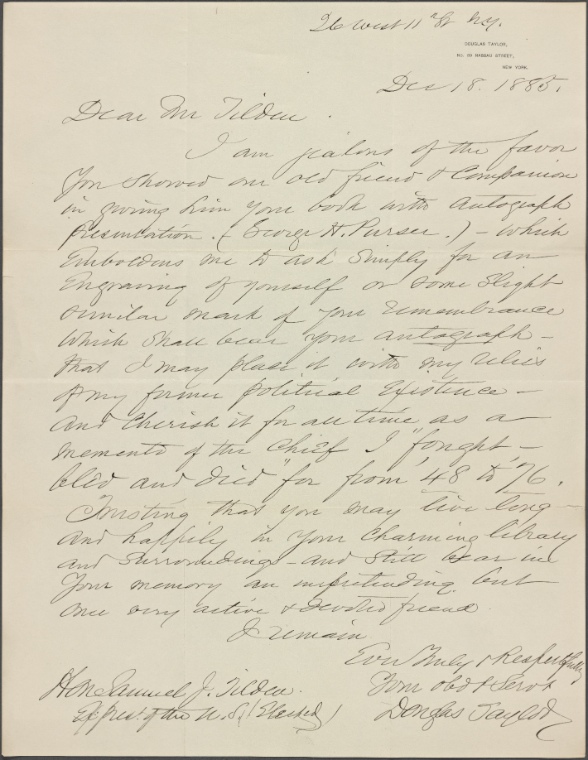 26 West 11th St N.Y.
DOUGLAS TAYLOR,
No. 89 NASSAU STREET,
NEW YORK.
Dec 18. 1885.
Dear Mr Tilden.
I am jealous of the favor
You showed our old friend & Companion
in giving him your book with autograph
presentation. (George H. Purser.) - which
Emboldens me to ask simply for an
Engraving of yourself or some slight
similar mark of your remembrance
which shall bear your autograph -
that I may place it with my relics
of my former political Existence -
and cherish it for all time as a
memento of the chief I "fought -
bled and died" for from '48 to '76.
Trusting that you may live long -
and happily in your charming library
and surroundings - and still bear in
Your memory an unpretending but
once very active & devoted friend
I remain
Ever Truly & Respectfully
Your obdt Servt
Douglas Taylor
Hon Samuel J. Tilden.
Ex Prest of the U.S. (Elected)